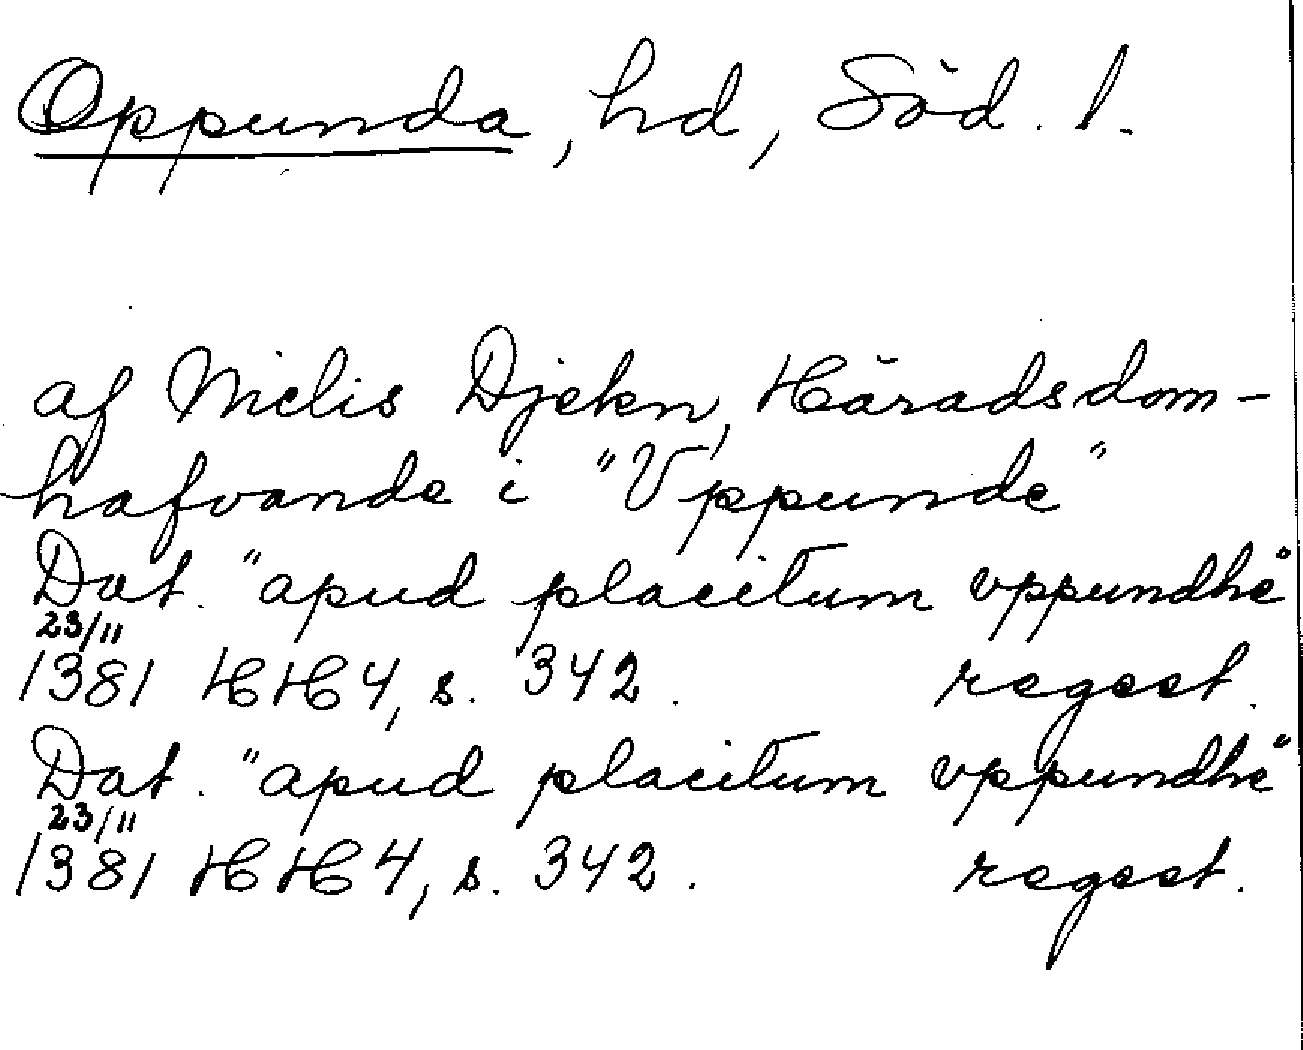 Oppunda, hd, Söd. l.
af Nielis Djekn, Häradsdom-
hafvande i "Vppunde"
Dat. "apud placitum vppundhe"
23/11
1381 HH 4, s. 342. regest.
Dat. "apud placitum vppundhe"
23/11
1381 HH 4, s. 342. regest.